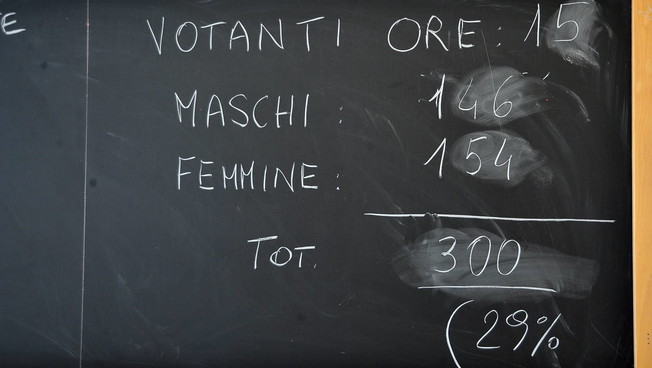 VOTANTI ORE: 15
MASCHI: 146
FEMMINE: 154
TOT. 300
(29%